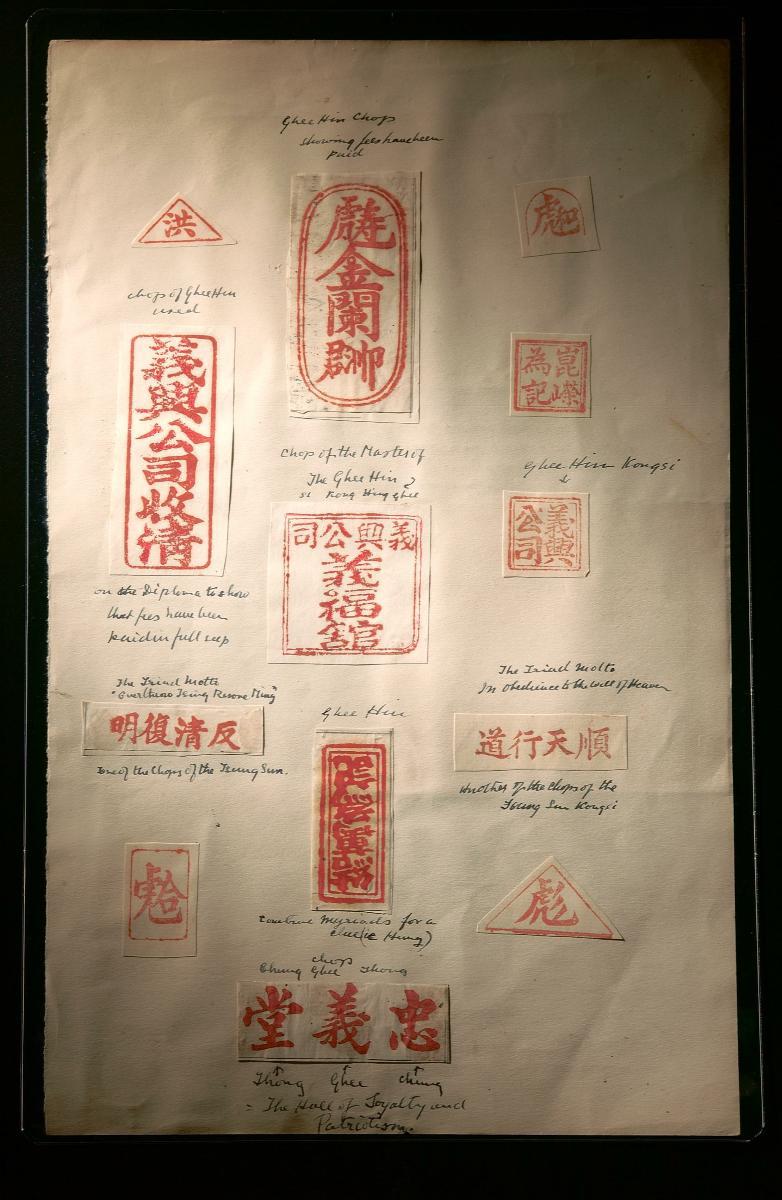 Ghee Hin Chop
showing fees have been
paid
洪
金蘭郡
chop of Ghee Hin
used
義興公司收清
為記
Chop of the Master of
The Ghee Hin
Ghee Hin Kongsi
義興公司
義興公司
義福館
on the Diploma to show
that fees have been
paid in full
The Triad Motto
"Overthrow Tsing Restore Ming"
反清復明
one of the Chops of the Tsung Sun.
Ghee Hin
The Triad Motto
In obedience to the will of Heaven
順天行道
Another of the Chops of the
Tsung Sun Kongsi
彪
Combine Myriads for a
(ie Hung)
chop
Chung Ghee Thong
忠義堂
Thong Ghee Chung
= The Hall of Loyalty and
Patriotism.